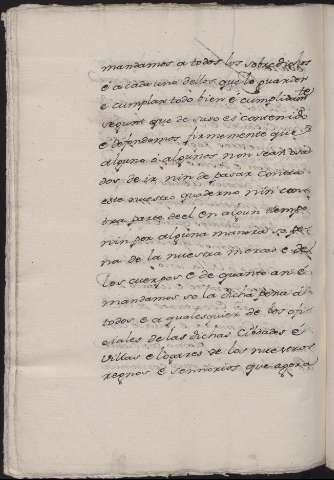 mandamos a todos los sobre dichos
é a cada uno dellos que lo guarden
e cumplan todo bien é cumplidamte
segunt que de suso es contenido
é defendemos firmemente que
alguno é algunos non sean osa
dos de ir nin de pasar contra
este nuestro quaderno nin con
tra parte del en algun tiempo
nin por alguna manera so pe
na de la nuestra merced é de
los cuerpos é de quanto an é
mandamos so la dicha pena á
todos e a qualesquier de los ofi
ciales de las dichas Cibdades é
villas e logares de los nuestros
regnos é sennorios que agora